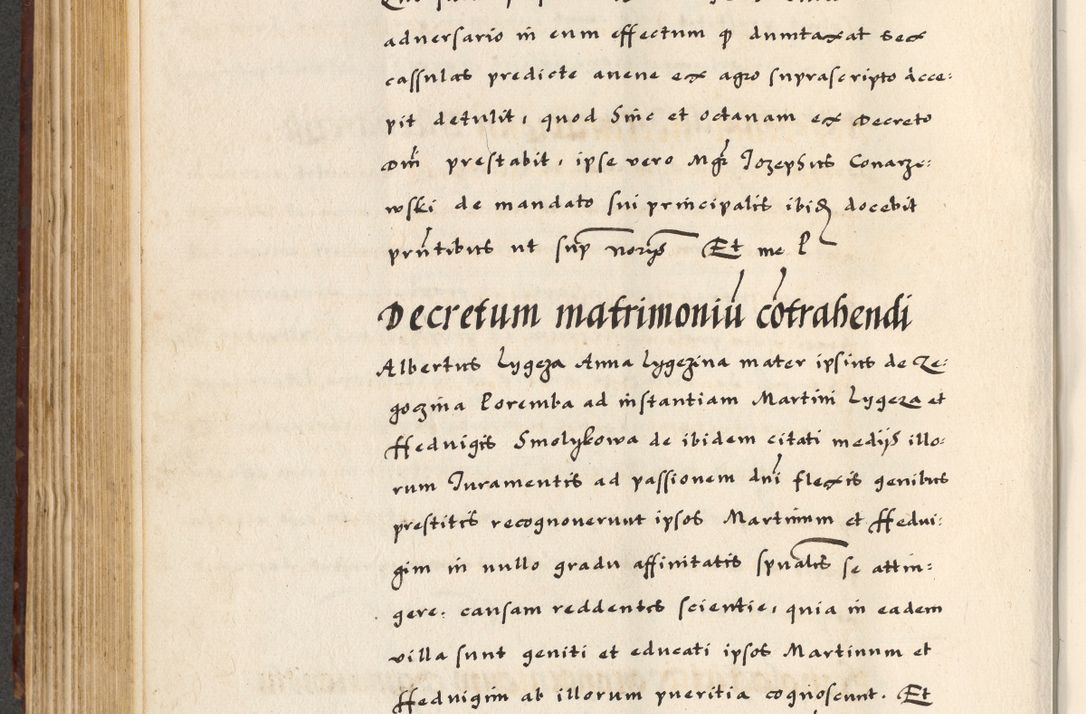 adversario in eum effectum q dumtaxat sex
cassulas predicte avene ex agro suprascripto Acce:
pit detulit, quod Sinc et octavam ex Decreto
Dni prestabit, ipse vero Mgr Jozephus Conarze:
wski de mandato sui principalis ibid docebit
prntibus ut sup noris Et me P
Decretum matrimoniu cotrahendi
Albertus Lygeza Anna Lygezina mater ipsius de Ze:
goczina Poremba ad instantiam Martini Lygeza et
Hedvigis Smolykowa de ibidem citati medijs illo:
rum Juramentis ad passionem dni flexis genibus
prestitis recognoverunt ipsos Martinum et Hedvi:
gim in nullo gradu affinitatis spualis se attin:
gere: causam reddentes scientie, quia in eadem
villa sunt geniti et educati ipsos Martinum et
Hedvigim ab illorum pueritia cognoscunt. Et